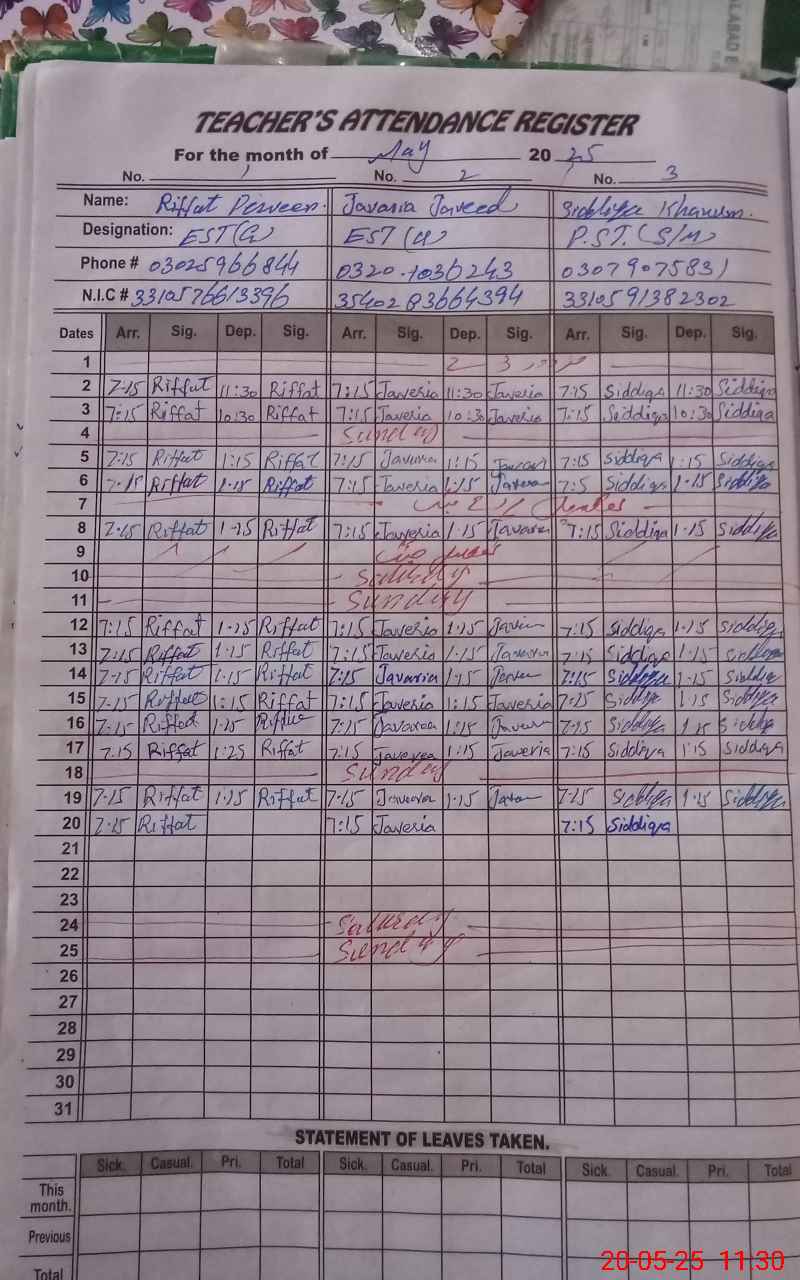 TEACHER'S ATTENDANCE REGISTER
For the month of May 2025
No. 1 No. 2 No. 3
Name: Riffat Perveen. Javaria Javeed Siddiqa Khanum.
Designation: EST(G) EST(U) P.S.T.(S/M)
Phone # 03025966844 0320.1036243 03079075831
N.I.C # 3310576613396 3540283664394 3310591382302
Dates Arr. Sig. Dep. Sig. Arr. Sig. Dep. Sig. Arr. Sig. Dep. Sig.
1
2 7-15 Riffat 11:30 Riffat 7:15 Javeria 11:30 Javeria 7:15 Siddiqa 11:30 Siddiqa
3 7:15 Riffat 10:30 Riffat 7:15 Javeria 10:30 Javeria 7:15 Siddiqa 10:30 Siddiqa
4 Sunday
5 7:15 Riffat 1:15 Riffat 7:15 Javeria 1:15 7:15 Siddiqa 1:15 Siddiqa
6 7-15 Riffat 1-15 Riffat 7:15 Javeria 1:15 Javeria Siddiqa 1-15 Siddiqa
7
8 7-15 Riffat 1-15 Riffat 7:15 Javeria 1-15 Javaria 7:15 Siddiqa 1-15 Siddiqa
9
10 Saturday
11 Sunday
12 7:15 Riffat 1-15 Riffat 7:15 Javeria 1:15 7:15 Siddiqa 1-15 Siddiqa
13 7:15 Riffat 1-15 Riffat 7:15 Javeria 1-15 Javaria 7:15 Siddiqa 1-15
14 7-15 Riffat 1-15 Riffat 7:15 Javaria 1:15 7:15 Siddiqa 1-15 Siddiqa
15 7-15 Riffat 1:15 Riffat 7:15 Javeria 1:15 Javeria 7:15 Siddiqa 1:15 Siddiqa
16 7:15 Riffat 1-15 7:15 1:15 7:15 Siddiqa 1 15 Siddiqa
17 7.15 Riffat 1:25 Riffat 7:15 1:15 Javeria 7:15 Siddiqa 1:15 Siddiqa
18 Sunday
19 7-15 Riffat 1:15 Riffat 7-15 1-15 7-15 Siddiqa 1-15 Siddiqa
20 7-15 Riffat 7:15 Javeria 7:15 Siddiqa
21
22
23
24 Saturday
25 Sunday
26
27
28
29
30
31
STATEMENT OF LEAVES TAKEN.
Sick. Casual. Pri. Total Sick. Casual. Pri. Total Sick. Casual. Pri. Total
This month.
Previous
Total
20-05-25 11:30